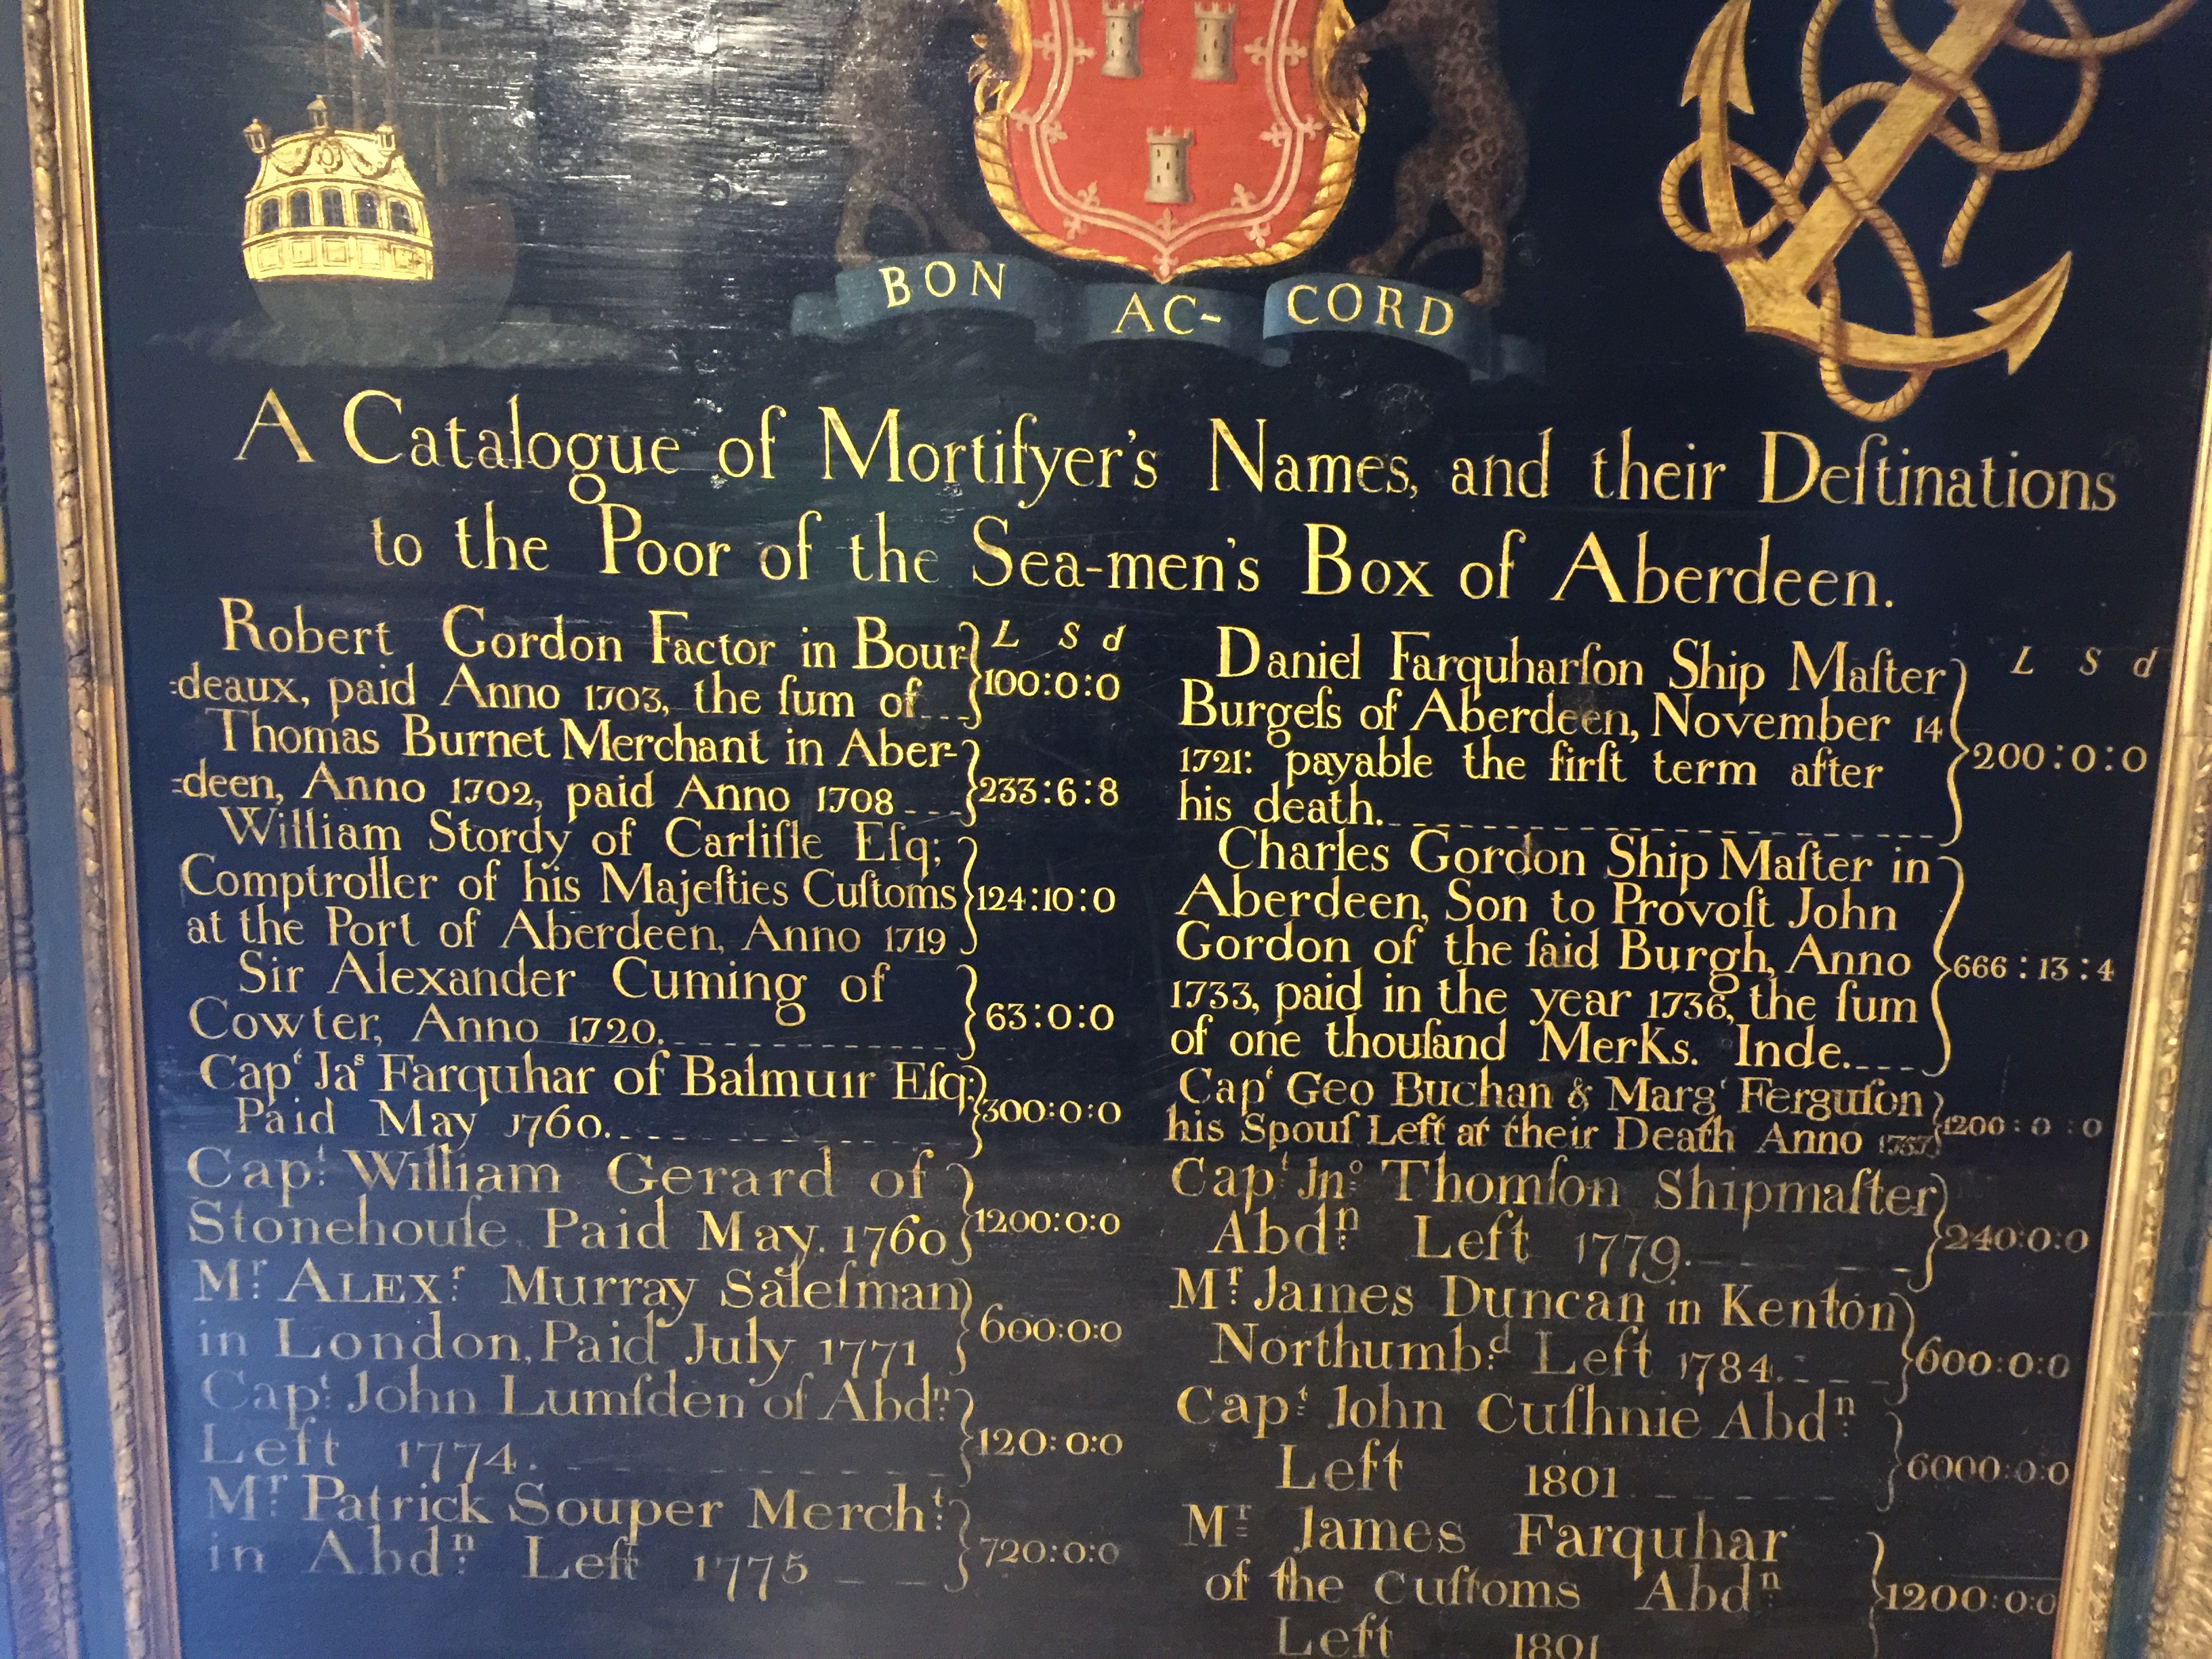 BON AC- CORD
A Catalogue of Mortifyer's Names, and their Deſtinations
to the Poor of the Sea-men's Box of Aberdeen.
L S d
Robert Gordon Factor in Bour
:deaux, paid Anno 1703, the ſum of 100:0:0
Thomas Burnet Merchant in Aber-
:deen, Anno 1702, paid Anno 1708 233:6:8
William Stordy of Carliſle Eſq;
Comptroller of his Majeſties Cuſtoms 124:10:0
at the Port of Aberdeen, Anno 1719
Sir Alexander Cuming of
Cowter, Anno 1720. 63:0:0
Capt Jas Farquhar of Balmuir Eſq;
Paid May 1760. 300:0:0
Capt William Gerard of
Stonehouſe Paid May. 1760 1200:0:0
Mr ALEXr Murray Saleſman
in London, Paid July 1771 600:0:0
Capt John Lumſden of Abdn
Left 1774. 120:0:0
Mr Patrick Souper Mercht
in Abdn Left 1775 720:0:0
L S d
Daniel Farquharſon Ship Maſter
Burgeſs of Aberdeen, November 14
1721: payable the firſt term after 200:0:0
his death.
Charles Gordon Ship Maſter in
Aberdeen, Son to Provoſt John
Gordon of the ſaid Burgh, Anno 666:13:4
1733, paid in the year 1736, the ſum
of one thouſand MerKs. Inde.
Capt Geo Buchan & Margt Ferguſon
his Spouſ Left at their Death Anno 1757 1200:0:0
Capt Jno Thomſon Shipmaſter
Abdn Left 1779. 240:0:0
Mr James Duncan in Kenton
Northumbd Left 1784. 600:0:0
Capt John Cuſhnie Abdn
Left 1801 6000:0:0
Mr James Farquhar
of the Cuſtoms Abdn 1200:0:0
Left 1801